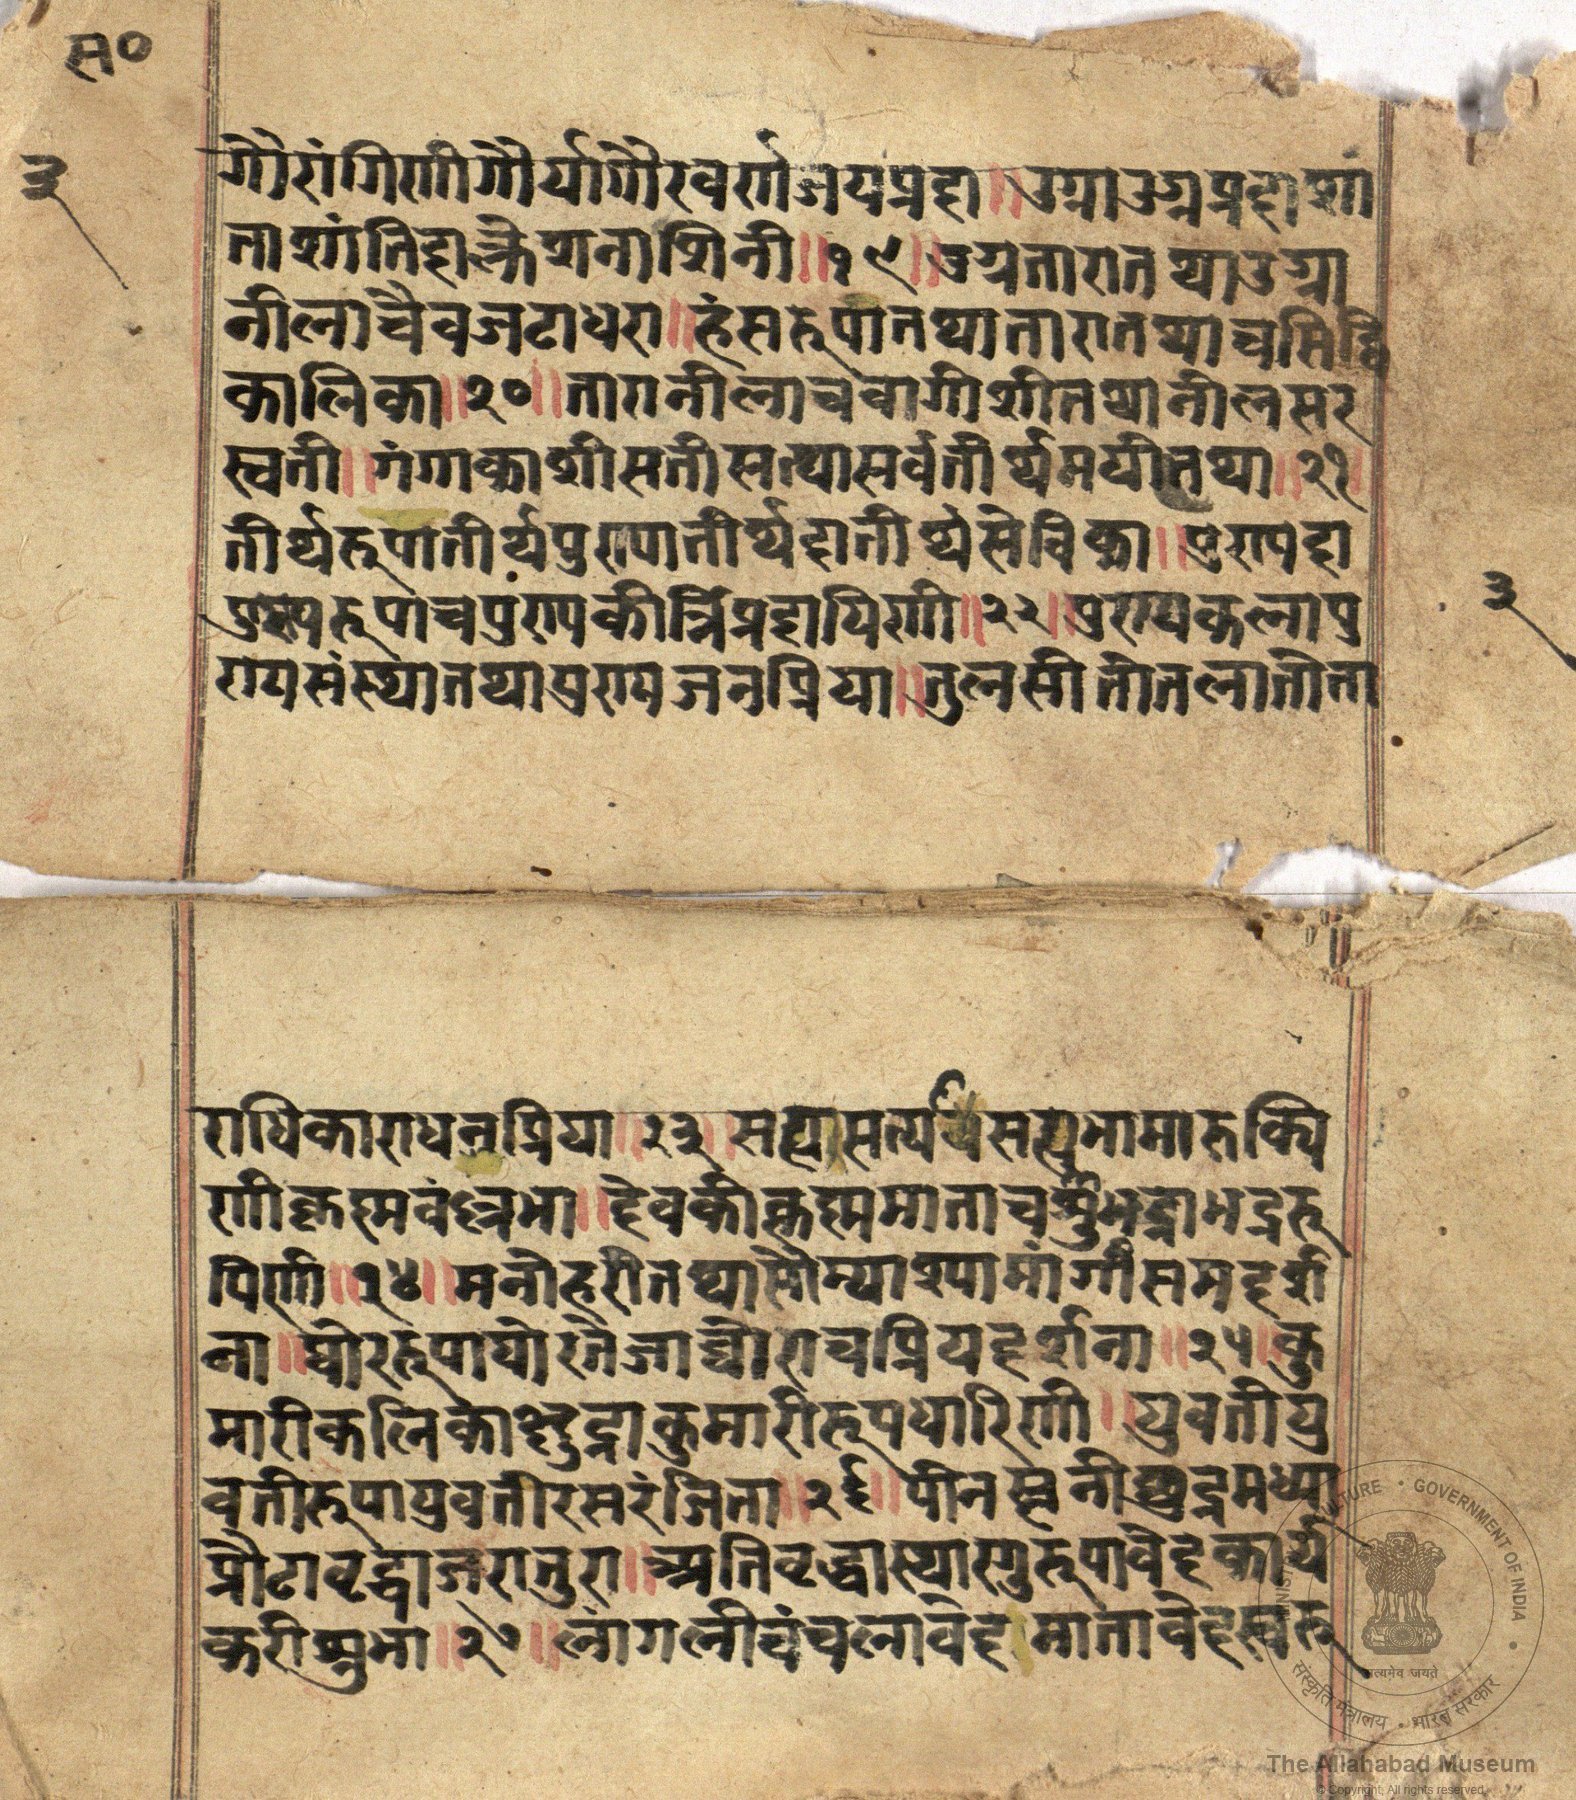 स०
३
गौरांगिणीगौर्यागौरवर्णाजयप्रदा॥उग्राउग्रप्रदाशां
ताशांतिदाक्लेशनाशिनी॥१९॥उग्रतारातथाउग्रा
नीलाचैवजटाधरा॥हंसरूपातथातारातथाचसिद्धि
कालिका॥२०॥तारानीलाचवागीशीतथानीलसर
स्वती॥गंगाकाशीसतीसत्यासर्वतीर्थमयीतथा॥२१॥
तीर्थरूपातीर्थपुण्यातीर्थदातीर्थसेविका॥पुण्यदा
पुण्यरूपाचपुंण्यकीर्त्तिप्रदायिणी॥२२॥पुण्यकलापु
ण्यसंस्थातथापुण्यजनप्रिया॥तुलसीतोतलातोता
३
राधिकाराधनप्रिया॥२३॥सत्यासत्य सत्यभामारुक्मि
णीकृष्मवल्लभा॥देवकीकृष्ममाताचसुभद्राभद्ररू
पिणी॥२४॥मनोहरीतथासौम्याश्यामांगीसमदर्श
ना॥घोररूपाघोरतेजाघोराचप्रियदर्शना॥२५॥कु
मारीकलिकाक्षुद्राकुमारीरूपधारिणी॥युवतीयु
वतीरूपायुवतीरसरंजिता॥२६॥पीनस्तनीक्षुद्रमध्या
प्रौढावृद्धाजरातुरा॥अतिवृद्धास्थाणुरूपावेदकार्थ
करीशुभा॥२७॥लांगलीचंचलावेदमातावेदस्वरू
MINISTRY OF CULTURE • GOVERNMENT OF INDIA •
सत्यमेव जयते
संस्कृति मंत्रालय • भारत सरकार
The Allahabad Museum
© Copyright, All rights reserved.